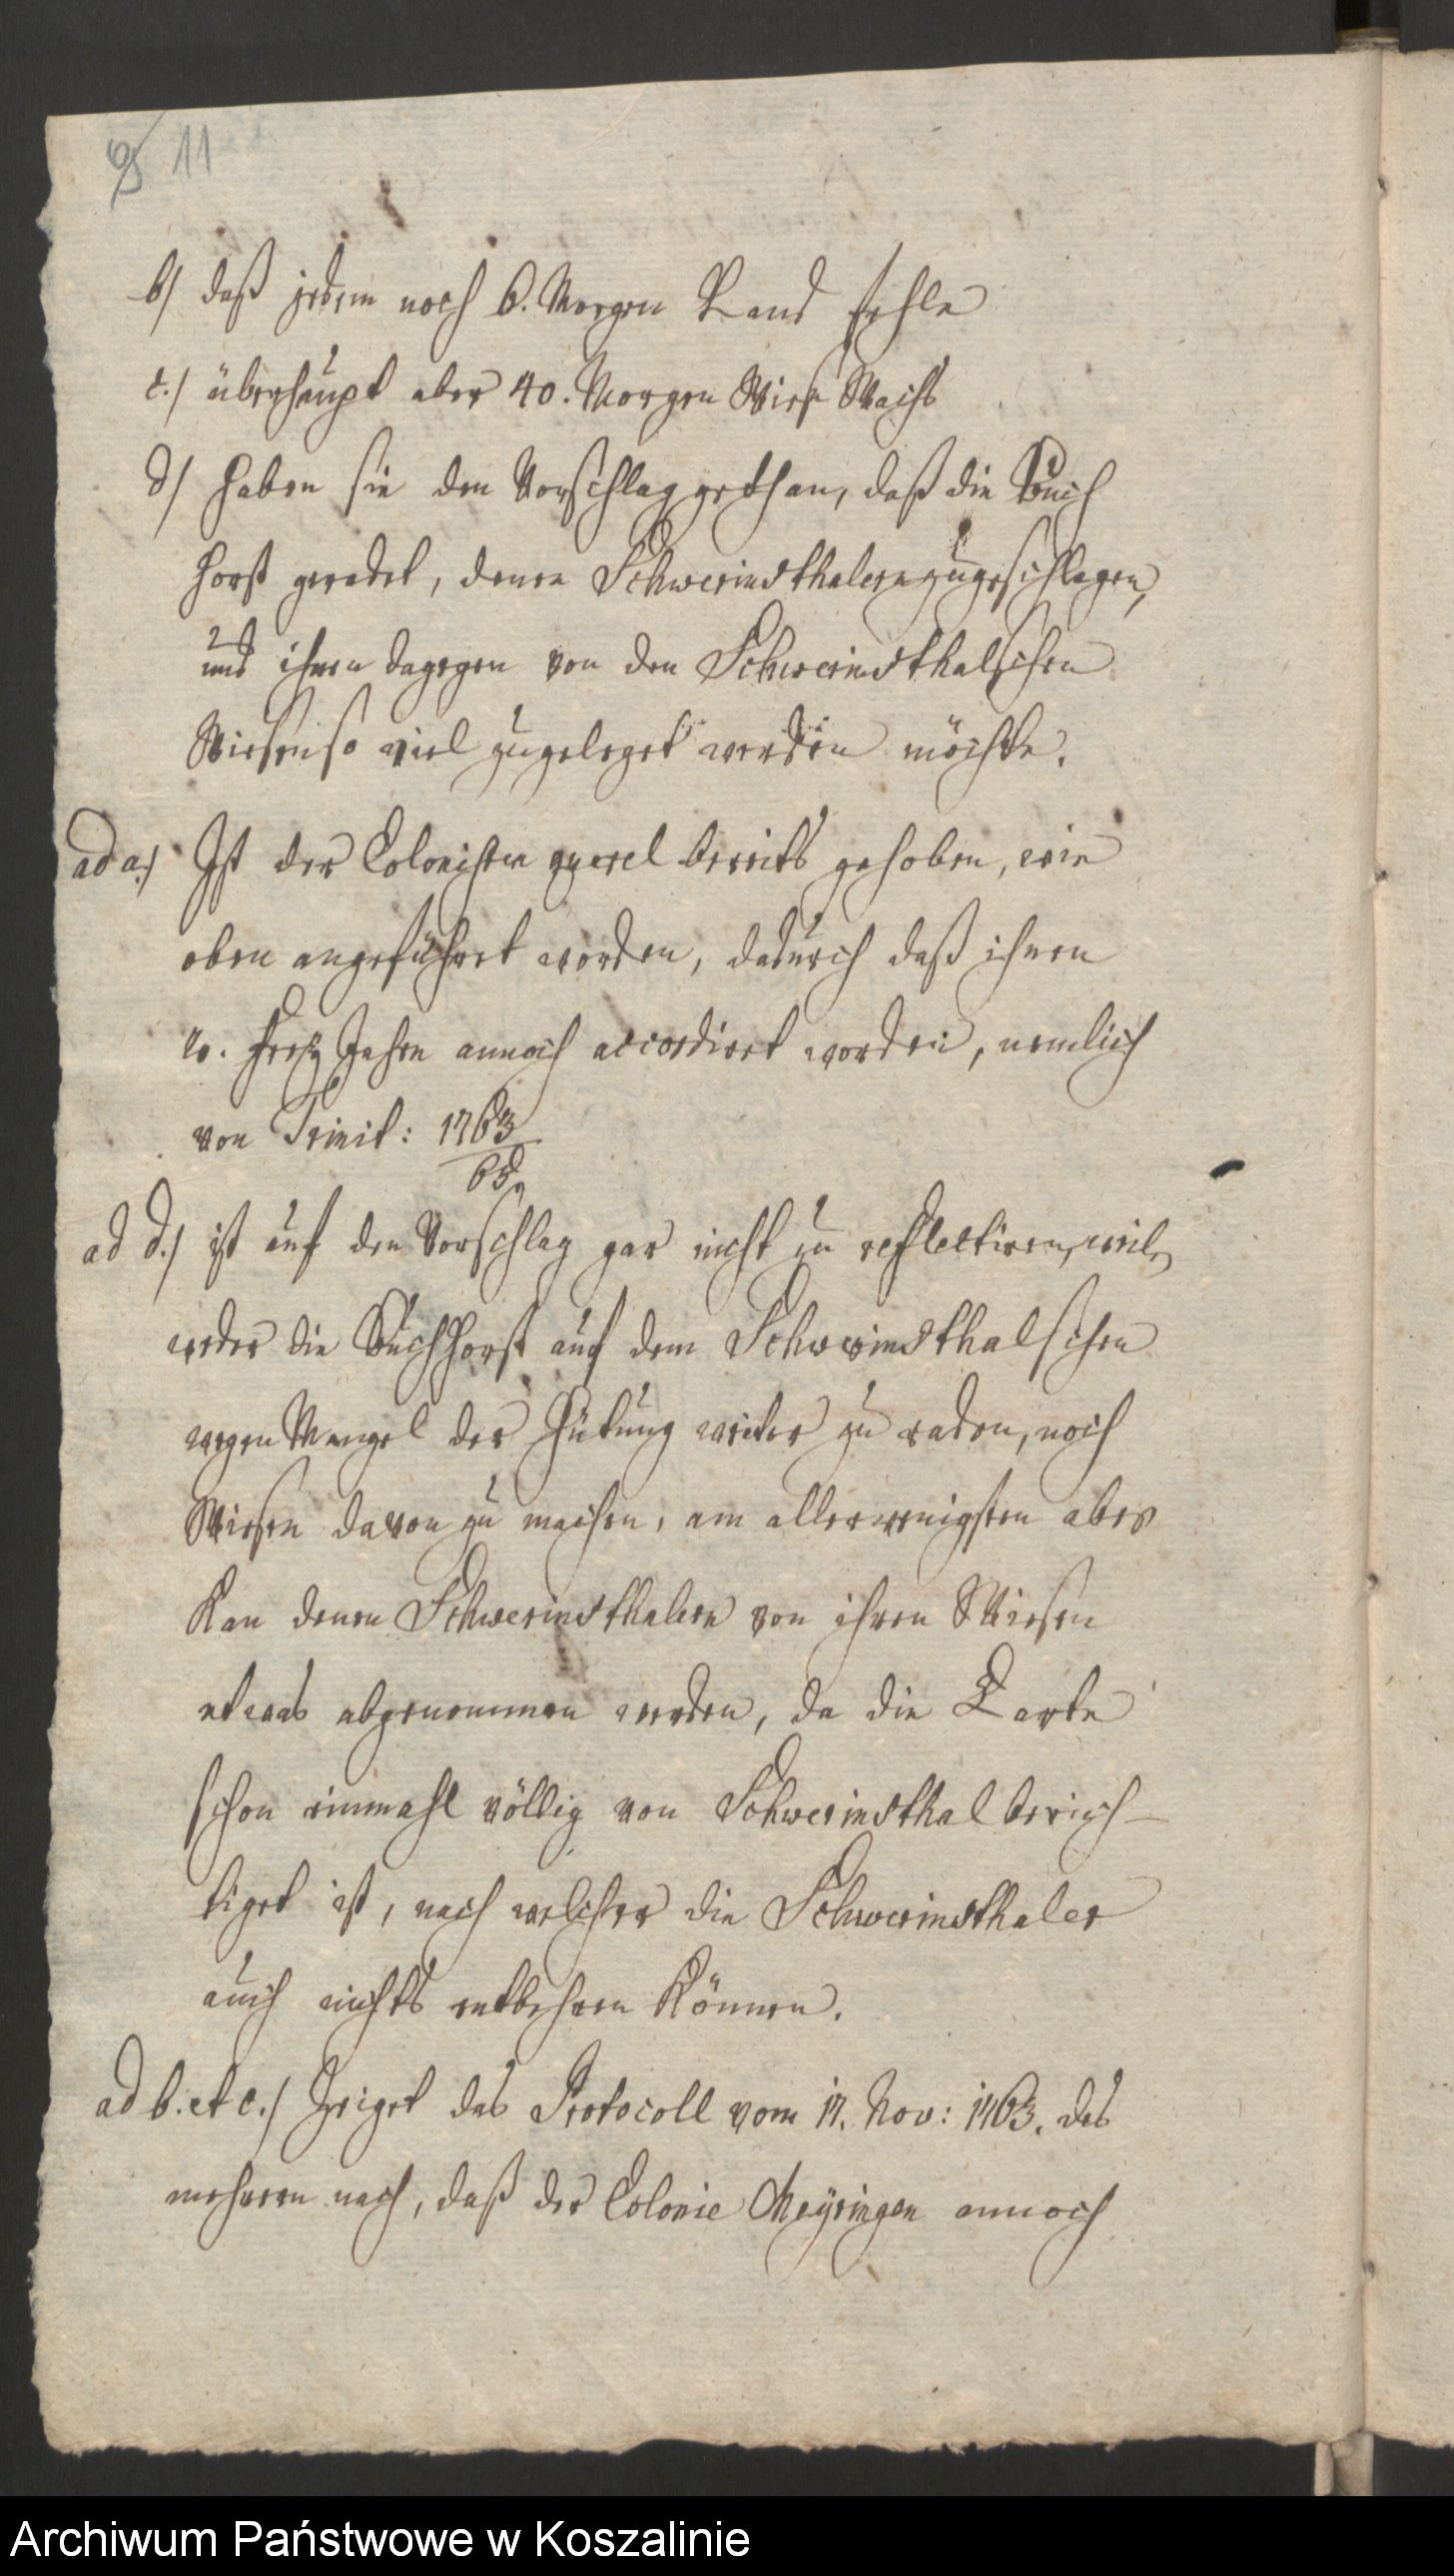 11
b) daß jedem noch 6. Morgen Land fehle
c.) überhaupt aber 40. Morgen Wiese Wachs
d) haben sie den Vorschlag gethan, daß die Buch
horst geradet, denen Schwerinsthalern zugeschlagen,
und ihnen dagegen von den Schwerinsthalschen
Wiesen so viel zugeleget werden möchte.
ad a.) Ist der Colonisten querel bereits gehoben, wie
oben angeführet worden, dadurch daß ihnen
2. Frey Jahre annoch accordiret worden, nemlich
von Trinit: 1763
65.
ad d.) ist auf den Vorschlag gar nicht zu reflectiren, weil
weder die Buchhorst auf dem Schwerinsthalschen
wegen Mangel der Hütung weiter zu raden, noch
Wiesen davon zu machen, am allerwenigsten aber
Kan denen Schwerinsthalern von ihren Wiesen
etwas abgenommen werden, da die Carte
schon einmahl völlig von Schwerinsthal berich-
tiget ist, nach welcher die Schwerinsthaler
auch nichts entbehren Können.
ad b. et c.) Zeiget das Protocoll vom 17. Nov: 1763. des
mehreren nach, daß der Colonie Meyringen annoch
Archiwum Państwowe w Koszalinie